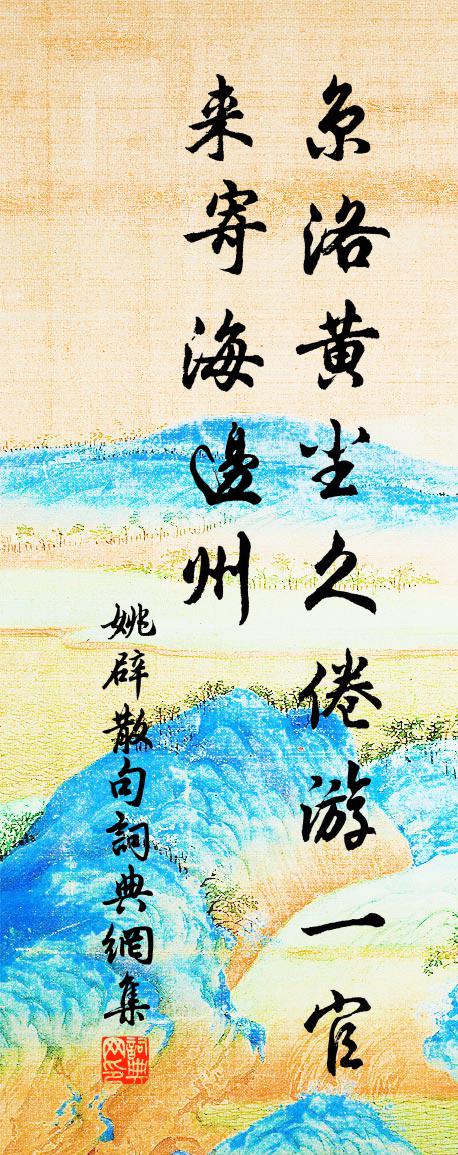 京洛黄尘久倦游一官
来寄海邊州
姚辟散句詞典網集
詞典网印